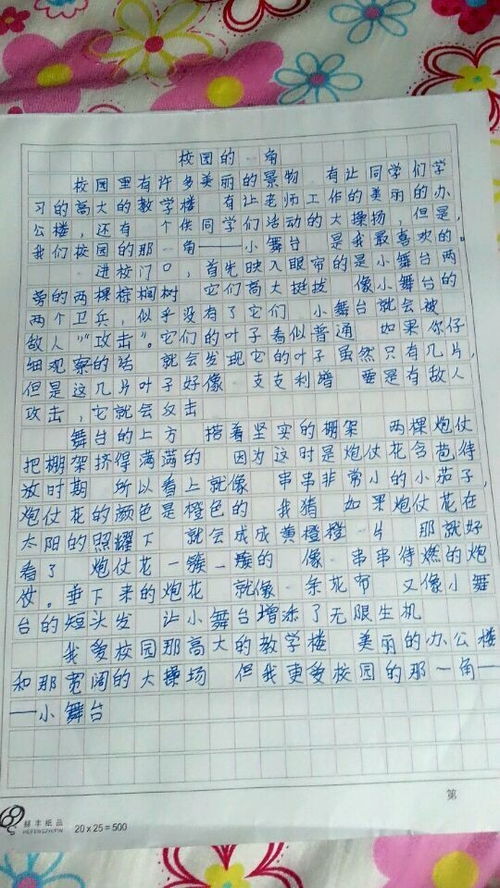 校园的一角
校园里有许多美丽的景物 有让同学们学
习的高大的教学楼 有让老师工作的美丽的办
公楼，还有一个供同学们活动的大操场，但是，
我们校园的那一角——小舞台 是我最喜欢的。
一进校门口，首先映入眼帘的是小舞台两
旁的两棵棕榈树 它们高大挺拔 像小舞台的
两个卫兵，似乎没有了它们 小舞台就会被
敌人“攻击”。它们的叶子看似普通 如果你仔
细观察的话 就会发现它的叶子虽然只有几片，
但是这几片叶子好像一支支利 要是有敌人
攻击，它就会反击
舞台的上方 搭着坚实的棚架 两棵炮仗
把棚架挤得满满的 因为这时是炮仗花含苞待
放时期 所以看上就像一串串非常小的小茄子，
炮仗花的颜色是橙色的 我猜 如果炮仗花在
太阳的照耀下 就会成成黄橙橙一片 那就好
看了 炮仗花一簇一簇的 像一串串待燃的炮
仗。垂下来的炮花 就像一条花布 又像小舞
台的短头发 让小舞台增添了无限生机
我爱校园那高大的教学楼 美丽的办公楼
和那宽阔的大操场 但我更爱校园的那一角—
—小舞台
第
20 x 25 = 500